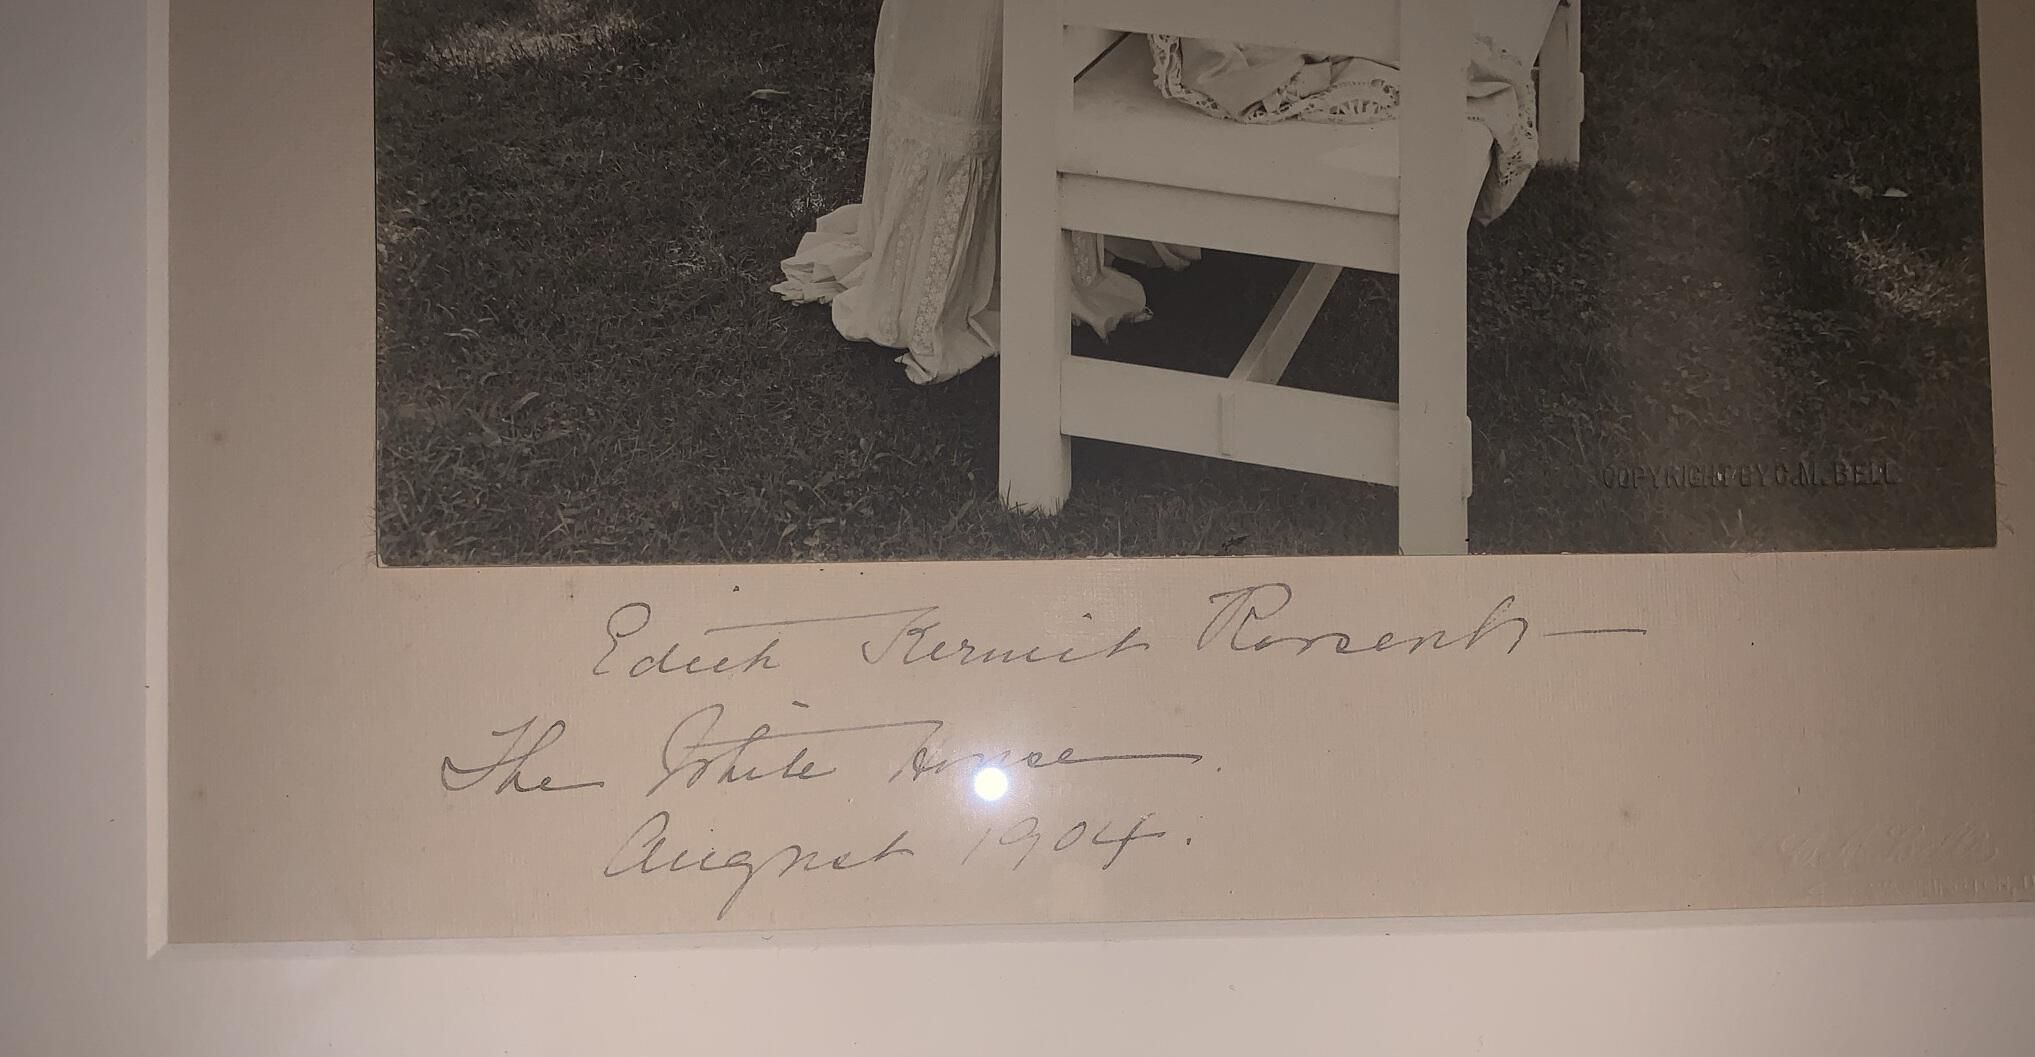 COPYRIGHT BY C.M. BELL
Edith Kermit Roosevelt
The White House.
August 1904.